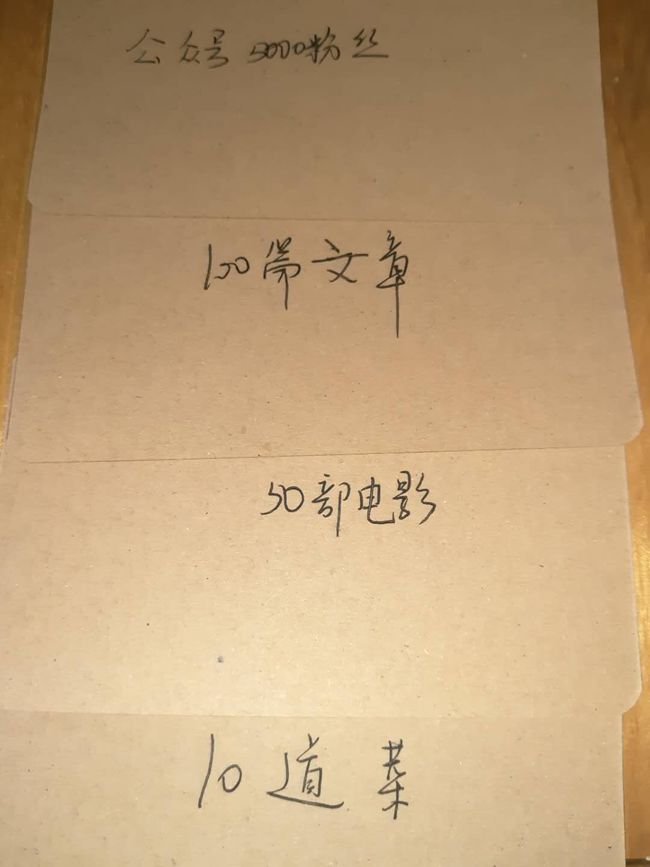 公众号5000粉丝
100篇文章
50部电影
10道菜